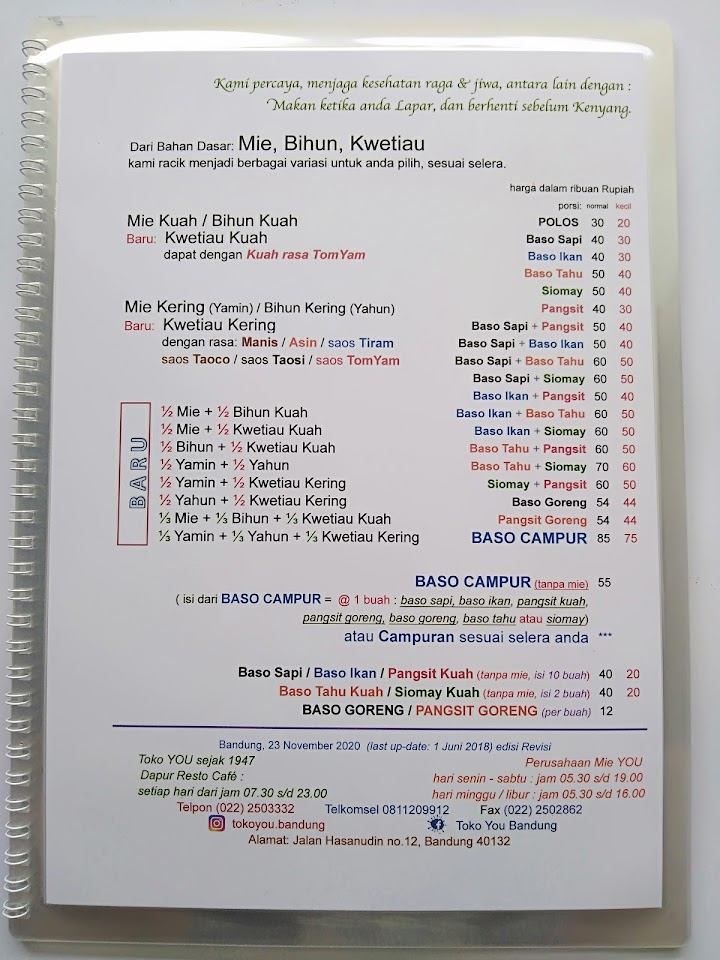 Kami percaya, menjaga kesehatan raga & jiwa, antara lain dengan :
Makan ketika anda Lapar, dan berhenti sebelum Kenyang.
Dari Bahan Dasar: Mie, Bihun, Kwetiau
kami racik menjadi berbagai variasi untuk anda pilih, sesuai selera.
harga dalam ribuan Rupiah
porsi: normal kecil
Mie Kuah / Bihun Kuah
Baru: Kwetiau Kuah
dapat dengan Kuah rasa TomYam
Mie Kering (Yamin) / Bihun Kering (Yahun)
Baru: Kwetiau Kering
dengan rasa: Manis / Asin / saos Tiram
saos Taoco / saos Taosi / saos TomYam
BARU
½ Mie + ½ Bihun Kuah
½ Mie + ½ Kwetiau Kuah
½ Bihun + ½ Kwetiau Kuah
½ Yamin + ½ Yahun
½ Yamin + ½ Kwetiau Kering
½ Yahun + ½ Kwetiau Kering
⅓ Mie + ⅓ Bihun + ⅓ Kwetiau Kuah
⅓ Yamin + ⅓ Yahun + ⅓ Kwetiau Kering
POLOS 30 20
Baso Sapi 40 30
Baso Ikan 40 30
Baso Tahu 50 40
Siomay 50 40
Pangsit 40 30
Baso Sapi + Pangsit 50 40
Baso Sapi + Baso Ikan 50 40
Baso Sapi + Baso Tahu 60 50
Baso Sapi + Siomay 60 50
Baso Ikan + Pangsit 50 40
Baso Ikan + Baso Tahu 60 50
Baso Ikan + Siomay 60 50
Baso Tahu + Pangsit 60 50
Baso Tahu + Siomay 70 60
Siomay + Pangsit 60 50
Baso Goreng 54 44
Pangsit Goreng 54 44
BASO CAMPUR 85 75
BASO CAMPUR (tanpa mie) 55
( isi dari BASO CAMPUR = @ 1 buah : baso sapi, baso ikan, pangsit kuah,
pangsit goreng, baso goreng, baso tahu atau siomay)
atau Campuran sesuai selera anda ***
Baso Sapi / Baso Ikan / Pangsit Kuah (tanpa mie, isi 10 buah) 40 20
Baso Tahu Kuah / Siomay Kuah (tanpa mie, isi 2 buah) 40 20
BASO GORENG / PANGSIT GORENG (per buah) 12
Bandung, 23 November 2020 (last up-date: 1 Juni 2018) edisi Revisi
Toko YOU sejak 1947
Dapur Resto Café :
setiap hari dari jam 07.30 s/d 23.00
Perusahaan Mie YOU
hari senin - sabtu : jam 05.30 s/d 19.00
hari minggu / libur : jam 05.30 s/d 16.00
Telpon (022) 2503332 Telkomsel 0811209912 Fax (022) 2502862
tokoyou.bandung Toko You Bandung
Alamat: Jalan Hasanudin no.12, Bandung 40132